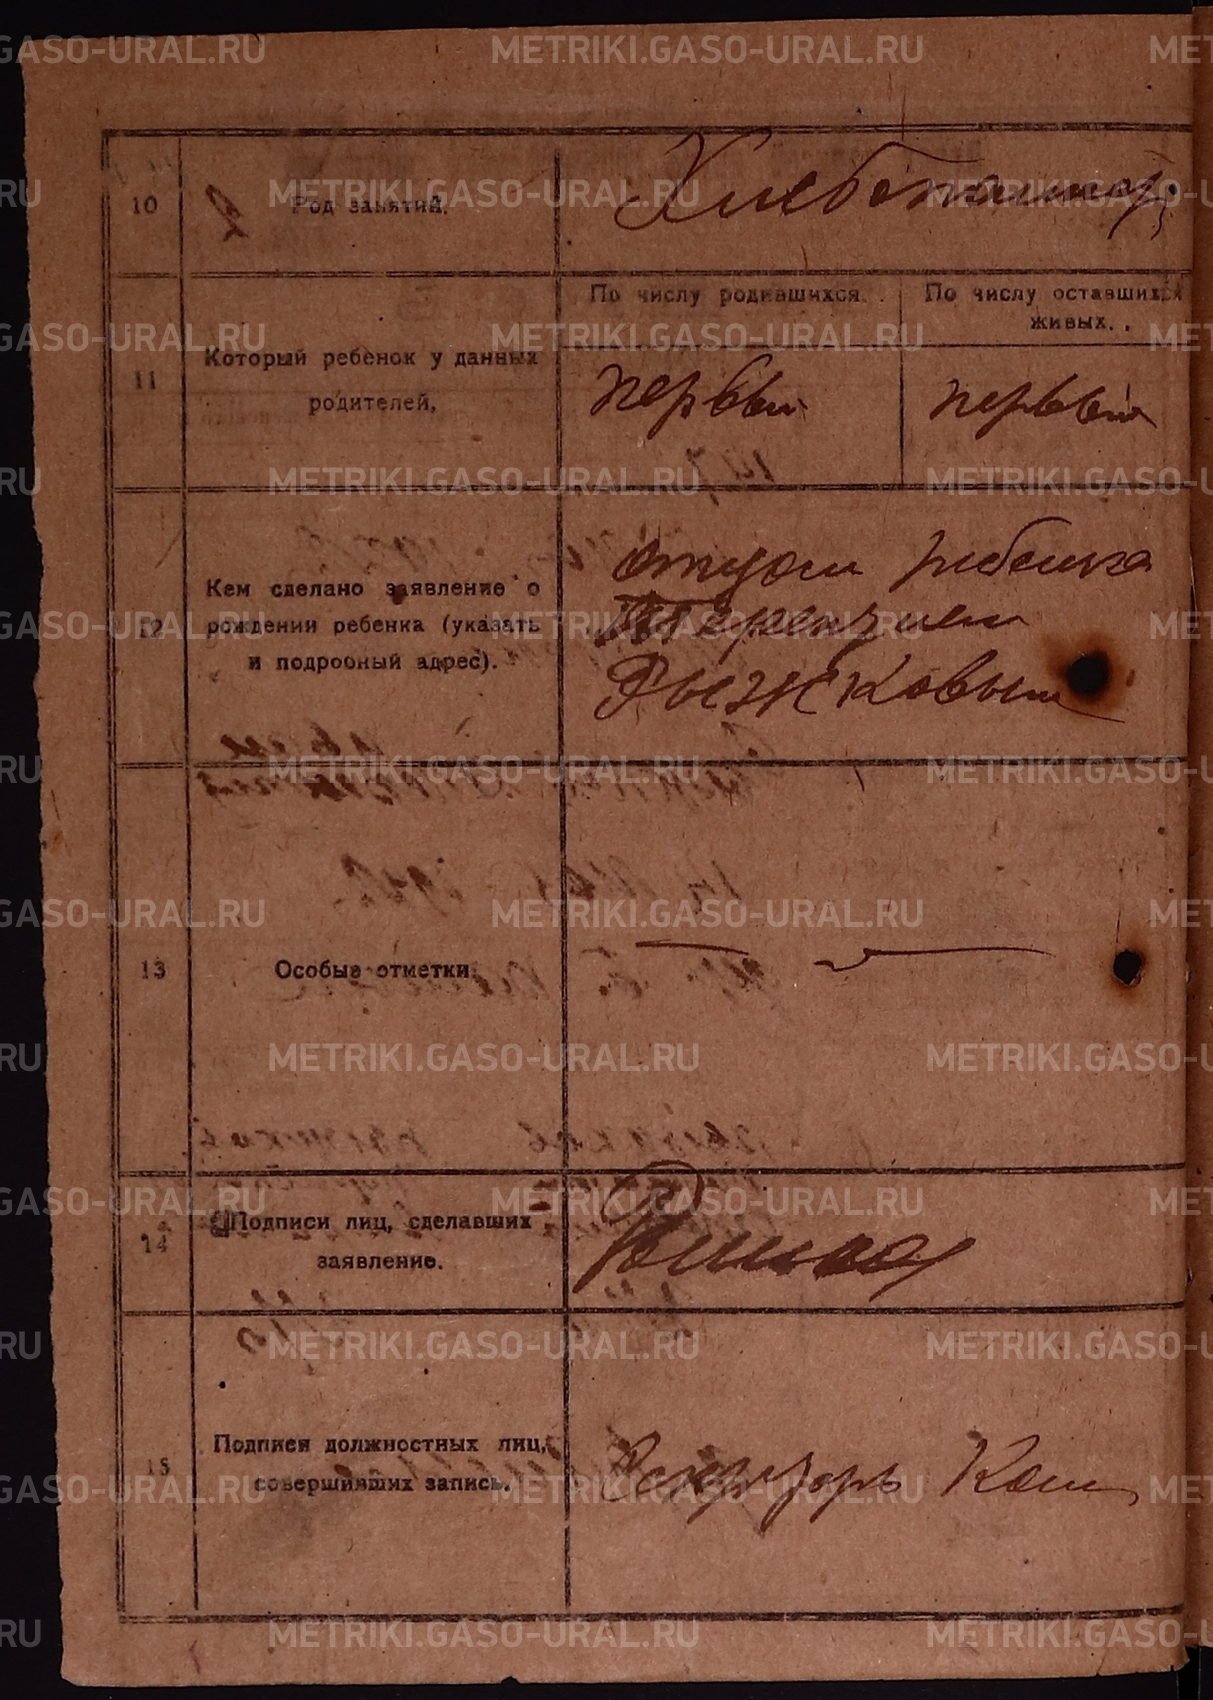 METRIKI.GASO-URAL.RU
10
Род занятий.
Хлебопашец
11
Который ребенок у данных
родителей,
По числу родившихся.
По числу оставшихся
живых.
первый
первый
12
Кем сделано заявление о
рождении ребенка (указать
и подробный адрес).
отцом ребенка
Терентием
Рыжковым
13
Особые отметки.
14
Подписи лиц, сделавших
заявление.
15
Подписи должностных лиц,
совершивших запись.